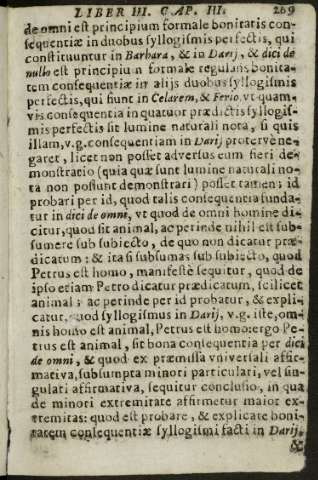 LIBER III. CAP. III. 269
de omni est principium formale bonitatis con-
sequentiæ in duobus syllogismis perfectis, qui
constituuntur in Barbara, & in Darij, & dici de
nullo est principiũ formale regulans bonita-
tem consequentiæ in alijs duobus syllogismis
perfectis, qui fiunt in Celarem, & Ferio. vt quam-
vis consequentia in quatuor prædictis syllogis-
mis perfectis sit lumine naturali nota, si quis
illam, v.g. consequentiam in Darij protervè ne-
garet, licet non posset adversus eum fieri de-
monstratio (quia quæ sunt lumine naturali no-
ta non possunt demonstrari) posset tamen; id
probari per id, quod talis consequentia funda-
tur in dici de omni, vt quod de omni homine di-
citur, quod sit animal, ac perinde nihil est sub-
sumere sub subiecto, de quo non dicatur præ-
dicatum; & ita si subsumas sub subiecto, quod
Petrus est homo, manifestè sequitur, quod de
ipso etiam Petro dicatur prædicatum, scilicet
animal; ac perinde per id probatur, & expli-
catur, quod syllogismus in Darij, v.g. iste, om-
nis homo est animal, Petrus est homo; ergo Pe-
trus est animal, sit bona consequentia per dici
de omni, & quod ex præmissa vniversali affir-
mativa, subsumpta minori particulari, vel sin-
gulari affirmativa, sequitur conclusio, in qua
de minori extremitate affirmetur maior ex-
tremitas: quod est probare, & explicare boni-
tatem consequentiæ syllogismi facti in Darij,
&